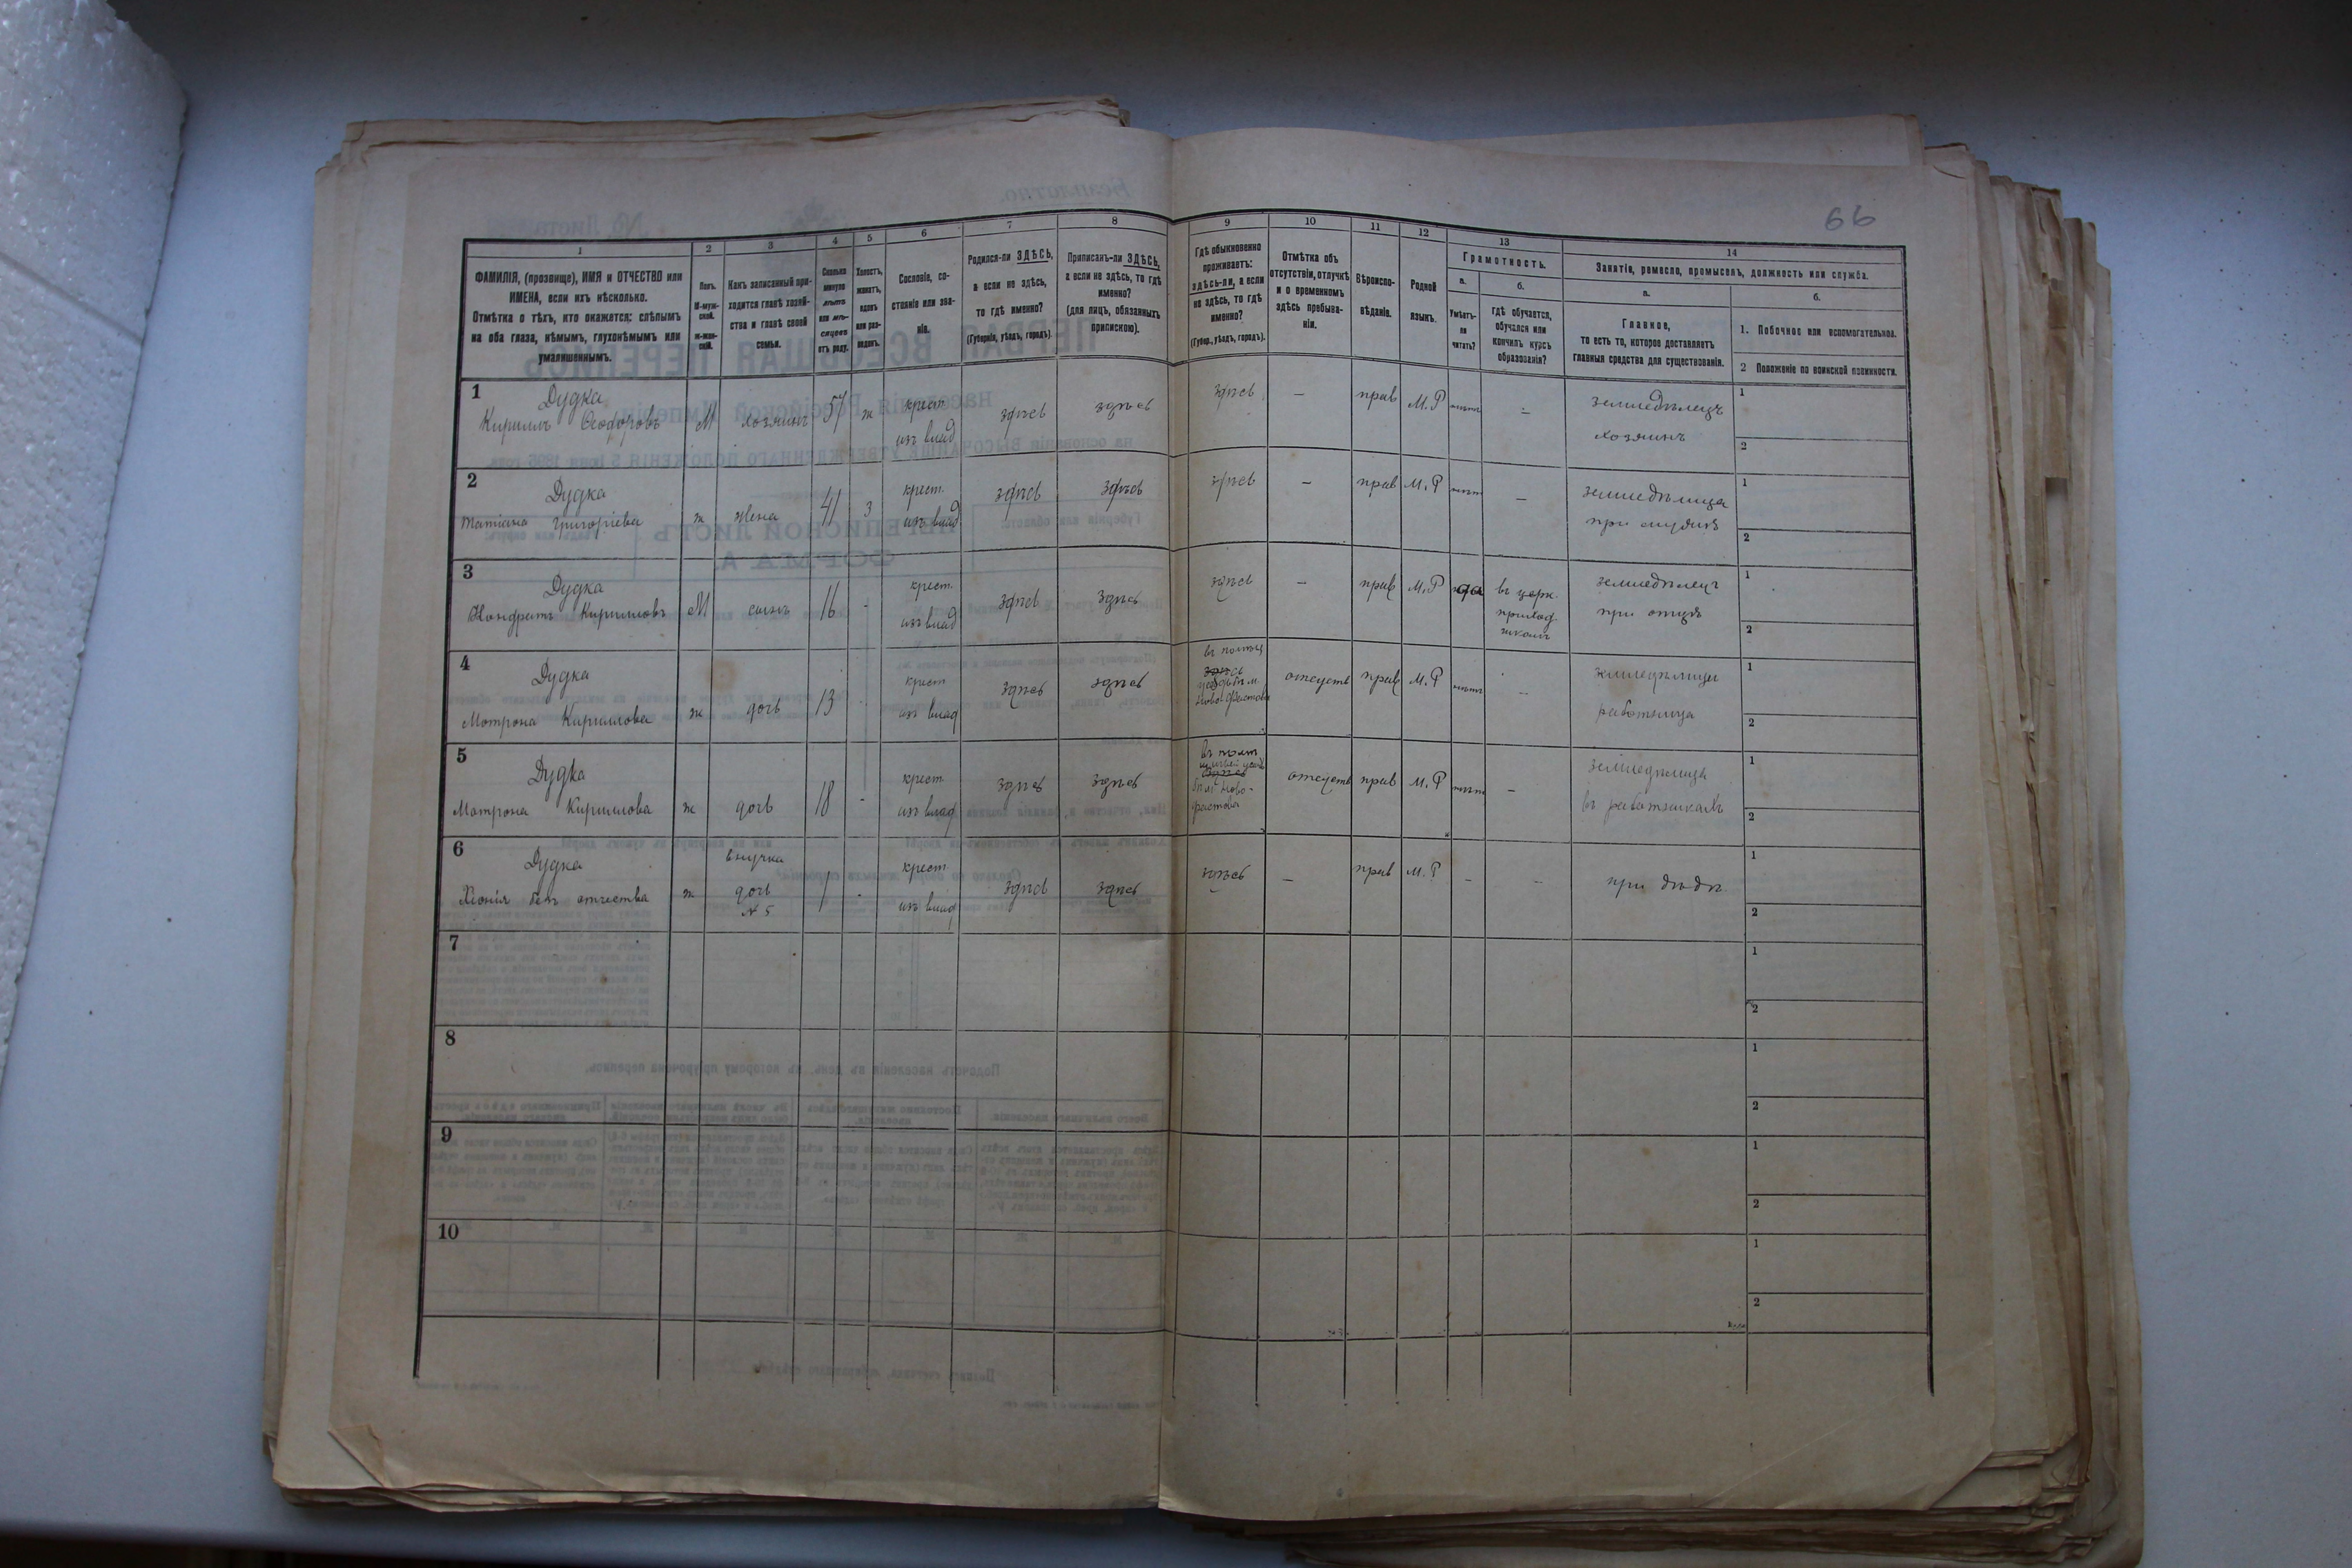 66
1
2
3
4
5
6
7
8
9
10
11
12
13
14
ФАМИЛІЯ, (прозвище), ИМЯ и ОТЧЕСТВО или
ИМЕНА, если ихъ нѣсколько.
Отмѣтка о тѣхъ, кто окажется: слѣпымъ
на оба глаза, нѣмымъ, глухонѣмымъ или
умалишеннымъ.
Полъ.
М-муж-
ской.
ж-жен-
скій.
Какъ записанный при-
ходится главѣ хозяй-
ства и главѣ своей
семьи.
Сколько
минуло
лѣтъ
или мѣ-
сяцевъ
отъ роду.
Холостъ,
женатъ,
вдовъ
или раз-
веденъ.
Сословіе, со-
стояніе или зва-
ніе.
Родился-ли ЗДѢСЬ,
а если не здѣсь,
то гдѣ именно?
(Губернія, уѣздъ, городъ).
Приписанъ-ли ЗДѢСЬ,
а если не здѣсь, то гдѣ
именно?
(для лицъ, обязанныхъ
припискою).
Гдѣ обыкновенно
проживаетъ:
здѣсь-ли, а если
не здѣсь, то гдѣ
именно?
(Губер., уѣздъ, городъ).
Отмѣтка объ
отсутствіи, отлучкѣ
и о временномъ
здѣсь пребыва-
ніи.
Вѣроиспо-
вѣданіе.
Родной
языкъ.
Грамотность.
а.
Умѣетъ-
ли
читать?
б.
гдѣ обучается,
обучался или
кончилъ курсъ
образованія?
Занятіе, ремесло, промыселъ, должность или служба.
а.
Главное,
то есть то, которое доставляетъ
главныя средства для существованія.
б.
1. Побочное или вспомогательное.
2 Положеніе по воинской повинности.
1
Дудка
Кириллъ Феодоровъ
М
хозяинъ
57
ж
крест
изъ влад
здѣсь
здѣсь
здѣсь
—
прав
М.Р
нѣтъ
—
земледѣлецъ
хозяинъ
1
2
2
Дудка
Татіана Григоріева
ж
жена
41
з
крест.
изъ влад
здѣсь
здѣсь
здѣсь
—
прав
М.Р
нѣтъ
—
земледѣлица
при мужѣ
1
2
3
Дудка
Кондратъ Кирилловъ
М
сынъ
16
-
крест.
изъ влад
здѣсь
здѣсь
здѣсь
—
прав
М.Р
да
въ церк.
приход
школѣ
земледѣлецъ
при отцѣ
1
2
4
Дудка
Мотрона Кириллова
ж
дочь
13
-
крест
изъ влад
здѣсь
здѣсь
здѣсь
отсутств
прав
М.Р
нѣтъ
—
земледѣлица
работница
1
2
5
Дудка
Матрона Кириллова
ж
дочь
18
-
крест
изъ влад
здѣсь
здѣсь
здѣсь
отсутств
прав
М.Р
нѣтъ
—
земледѣлица
въ работникахъ
1
2
6
Дудка
Хіонія безъ отчества
ж
внучка
дочь
№ 5
1
-
крест
изъ влад
здѣсь
здѣсь
здѣсь
—
прав
М.Р
-
-
при дѣдѣ
1
2
7
1
2
8
1
2
9
1
2
10
1
2